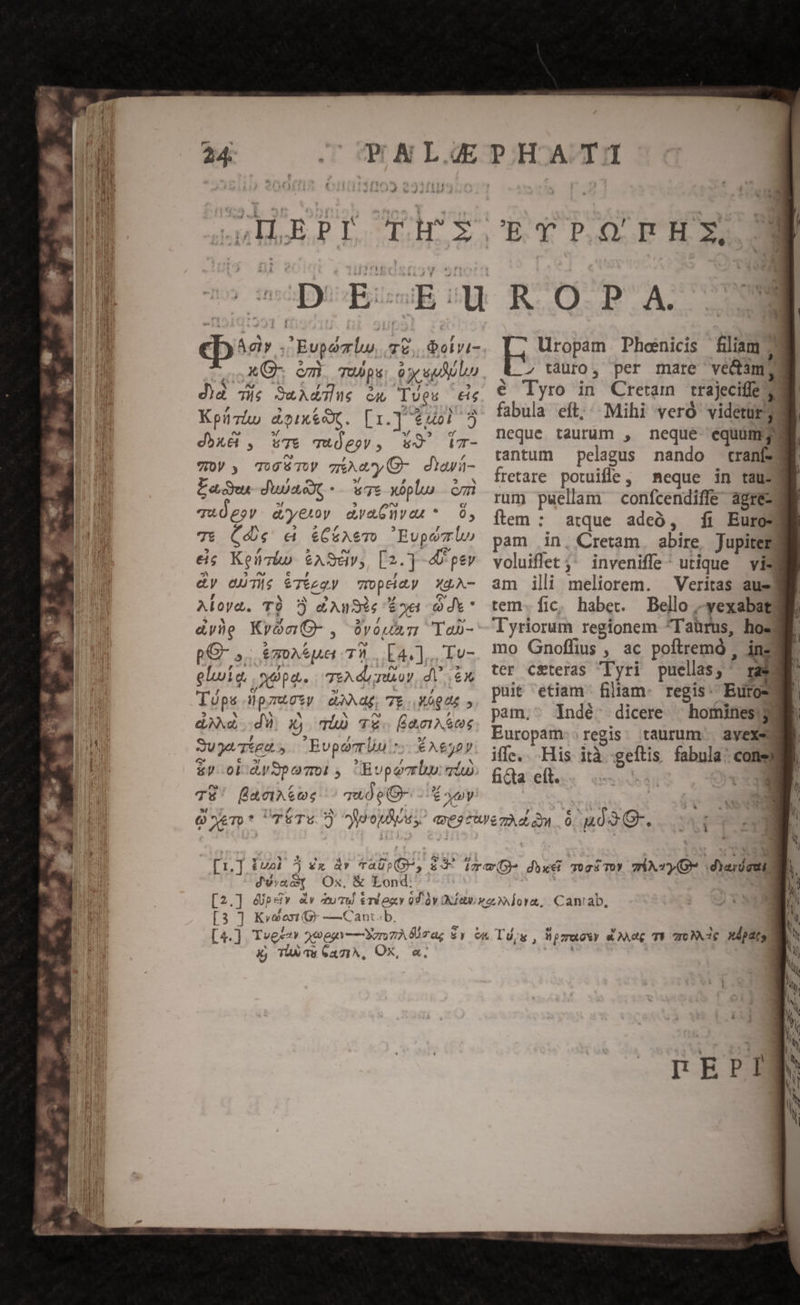 24 PALÆPHATI
ΠΕΡΙ ΤΗΣ ἘΥΡΩΠΗΣ.
DE EUROPA.
Φασὶν Εὐρώπlω τȣ̃ Φοίνι-
κος ἐπὶ ταύρȣ ὀχȣμθμlω
διὰ τῆς θαλάττης ἐκ Τύρȣ εἰς
Κρήτlω ἀφικέσθαι. [1.] ἐμοὶ δὲ
δοκεῖ, ȣ̓́τε ταῦρον, ȣ̓́θ' ἵπ-
πον, τοσȣ̃τον πέλαγος διανή-
ξασθαι δυναίσθαι· ȣ̓́τε κόρlω ἐπὶ
ταῦρον ἄγειον ἀναβῆναι· ὅ,
τε Ζεὺς εἰ ἐβȣ́λετο Εὐρώπlω
εἰς Κρήτlω ἐλθεῖν, [2.] εὗρεν
ἂν αὐτῆς ἑτέραν πορείαν καλ-
λίονα. τὸ δὲ ἀληθὲς ἔχει ὧδε·
ἀνὴρ Κνώσιος, ὀνόματι Ταῦ-
ρος, ἐπολέμει τῇ [4.] Τυ-
ρlωίᾳ χώρᾳ. τελευταῖον δ' ἐκ
Τύρȣ ἥρπασεν ἄλλας τε κόρας,
ἀλλὰ δὴ καὶ τlὼ τȣ̃ βασιλέως
θυγατέρα, Εὐρώπlω· ἔλεγον
ȣ̓͂ν οἱ ἄνθρωποι, Εὐρώπlω τlὼ
τȣ̃ βασιλέως ταῦρος ἔχων
ᾤχετο· τȣ́τȣ δὲ γθομθμȣ, προσανεπλάσθη ὁ μῦθος.
EUropam Phœnicis filiam,
tauro, per mare vectam,
è Tyro in Cretam trajecisse,
fabula est. Mihi verò videtur,
neque taurum, neque equum,
tantum pelagus nando trans-
fretare potuisse, neque in tau-
rum puellam conscendisse agre-
stem: atque adeò, si Euro-
pam in Cretam abire Jupiter
voluisset, invenisse utique vi-
am illi meliorem. Veritas au-
tem sic habet. Bello vexabat
Tyriorum regionem Taurus, ho-
mo Gnossius, ac postremò, in-
ter cæteras Tyri puellas, ra-
puit etiam filiam regis Euro-
pam. Indè dicere homines,
Europam regis taurum avex-
isse. His ità gestis fabula con-
ficta est.
[1.] ἐμοὶ δὲ ȣ̓κ ἂν ταῦρος, ȣ̓́θ' ἵππος δοκεῖ τοσȣ̃τον πέλαγος διανύσαι
δύνασθαι Ox. & Lond.
[2.] εὑρεῖν ἂν αὐτῷ ἑτέραν ὁδὸν λίαν καλλίονα. Cantab.
[3] Κνώσσιος—Cantab.
[4.] Τυρίαν χώραν— ȣ̓͂ν ἐκ Τύρȣ, ἥρπασεν ἄλλας τε πολλὰς κόρας,
καὶ τlὼ τȣ̃ βασιλ. Ox. α.
ΠΕΡΙ